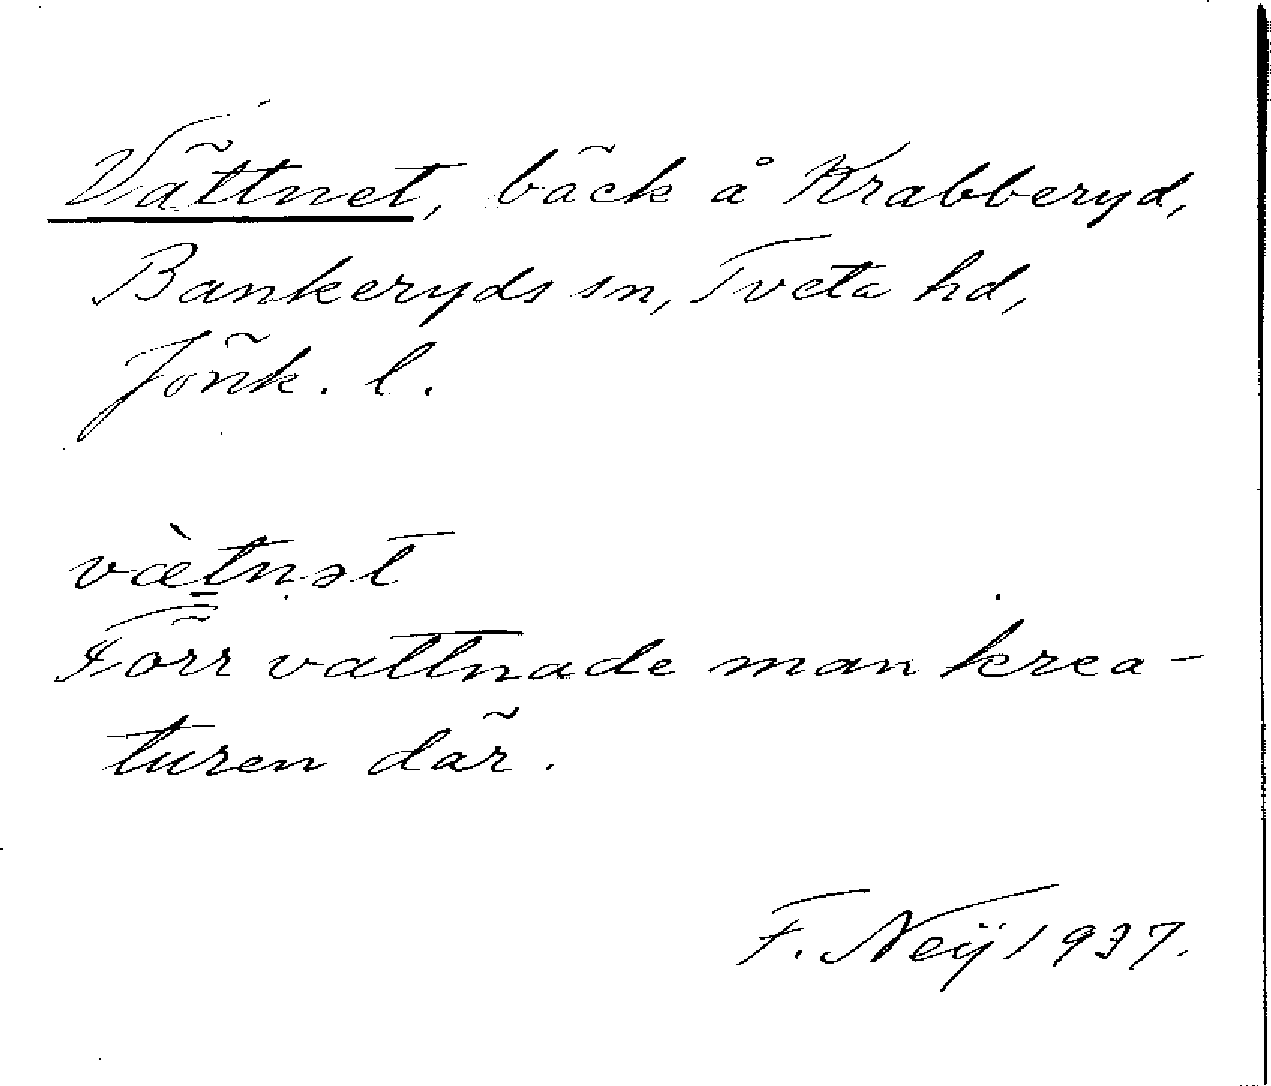 Vättnet, bäck å Krabberyd,
Bankeryds sn, Tveta hd,
Jönk. l.
vètnət
Förr vattnade man krea-
turen där.
F. Neij 1937.